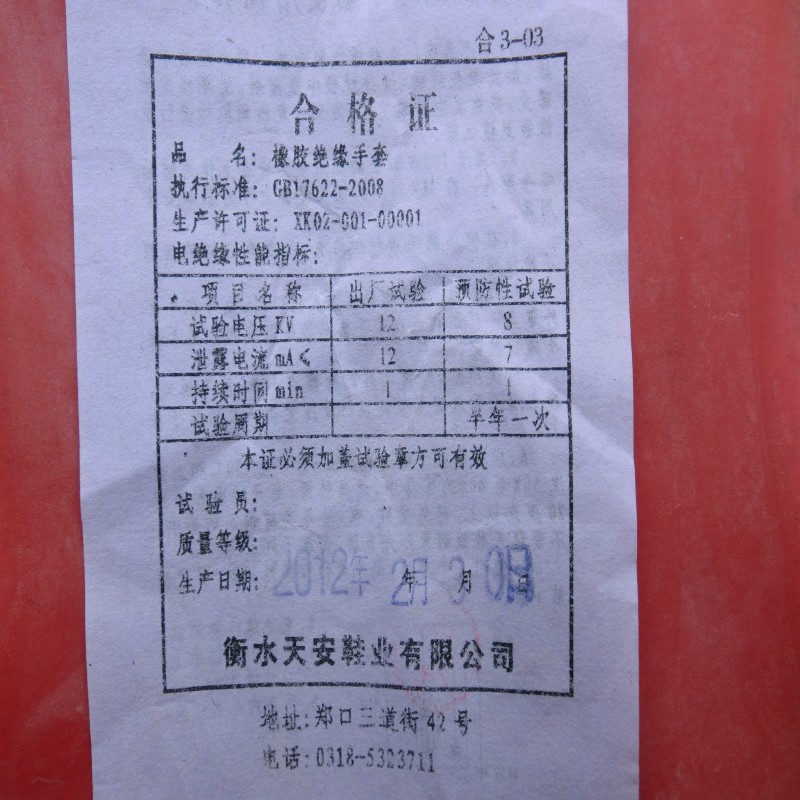 合3-03
合格证
品 名: 橡胶绝缘手套
执行标准: GB17622-2008
生产许可证: XK02-001-00001
电绝缘性能指标:
项目名称 出厂试验 预防性试验
试验电压KV 12 8
泄露电流mA< 12 7
持续时间min 1 1
试验周期 半年一次
本证必须加盖试验章方可有效
试验员:
质量等级:
生产日期: 2012年 年 2月 月 30日 日
衡水天安鞋业有限公司
地址:郑口三道街42号
电话:0318-5323711